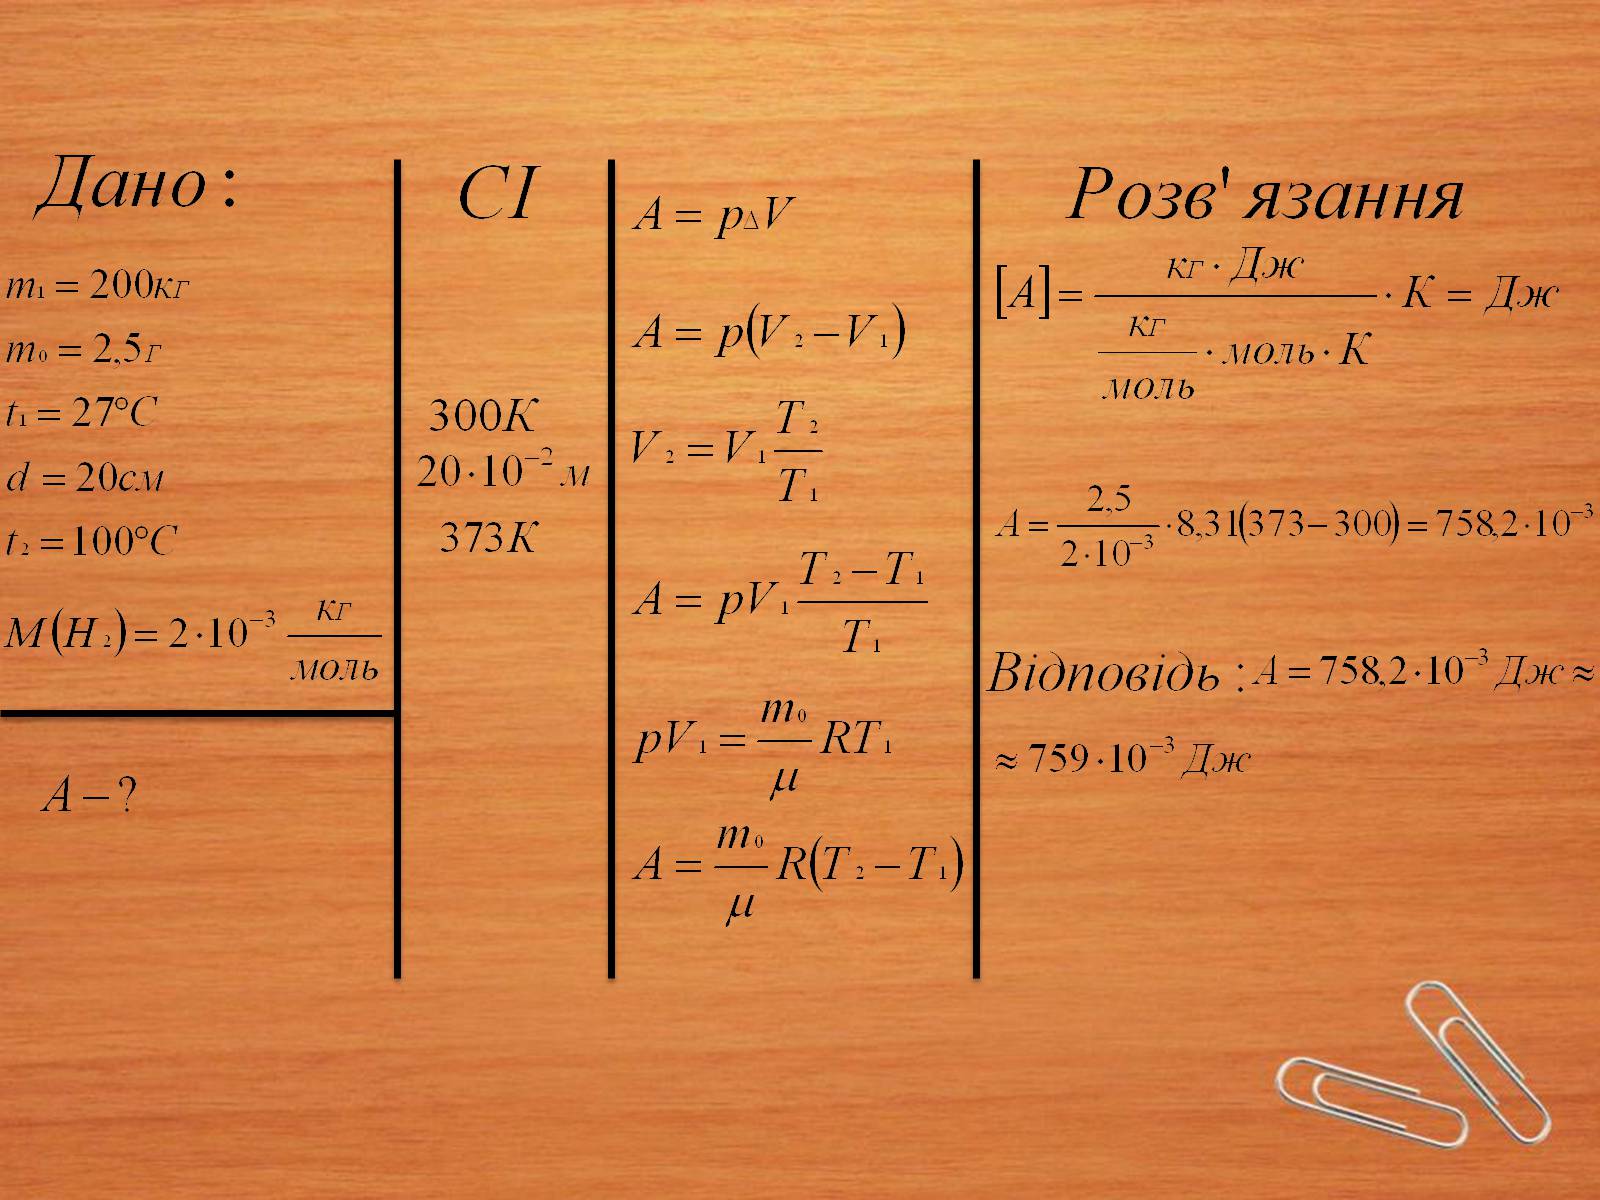 Дано :
m₁ = 200кг
m₀ = 2,5г
t₁ = 27°C
d = 20см
t₂ = 100°C
M(H₂) = 2·10⁻³ кг/моль
A – ?
СІ
300К
20·10⁻² м
373К
A = p△V
A = p(V₂ – V₁)
V₂ = V₁ T₂/T₁
A = pV₁ (T₂ – T₁)/T₁
pV₁ = m₀/μ RT₁
A = m₀/μ R(T₂ – T₁)
Розв' язання
[A] = (кг · Дж)/(кг/моль · моль · К) · К = Дж
A = 2,5/(2·10⁻³) · 8,31(373 – 300) = 758,2·10⁻³
Відповідь : A = 758,2·10⁻³ Дж ≈
≈ 759·10⁻³ Дж